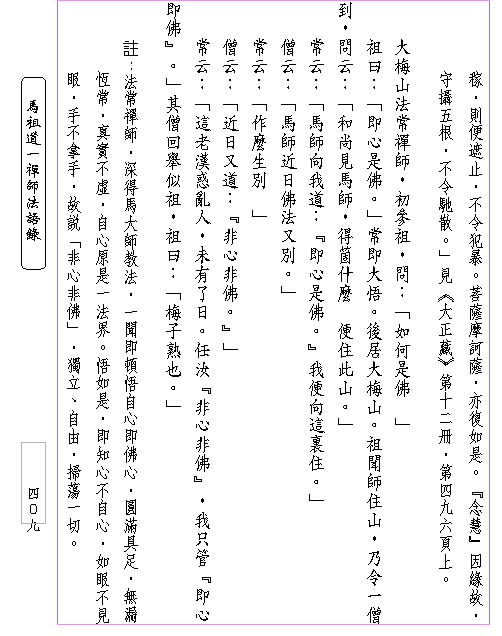 稼，則便遮止，不令犯暴。菩薩摩訶薩，亦復如是。『念慧』因緣故，
守攝五根，不令馳散。」見《大正藏》第十二冊，第四九六頁上。
大梅山法常禪師，初參祖，問：「如何是佛　」
祖曰：「即心是佛。」常即大悟。後居大梅山。祖聞師住山，乃令一僧
到，問云：「和尚見馬師，得箇什麼　便住此山。」
常云：「馬師向我道：『即心是佛。』我便向這裏住。」
僧云：「馬師近日佛法又別。」
常云：「作麼生別　」
僧云：「近日又道：『非心非佛。』」
常云：「這老漢惑亂人，未有了日。任汝『非心非佛』，我只管『即心
即佛』。」其僧回舉似祖，祖曰：「梅子熟也。」
註：法常禪師，深得馬大師教法，一聞即頓悟自心即佛心，圓滿具足，無漏
恆常，真實不虛，自心原是一法界。悟如是，即知心不自心，如眼不見
眼，手不拿手，故說「非心非佛」，獨立、自由，掃蕩一切。
馬祖道一禪師法語錄
四０九